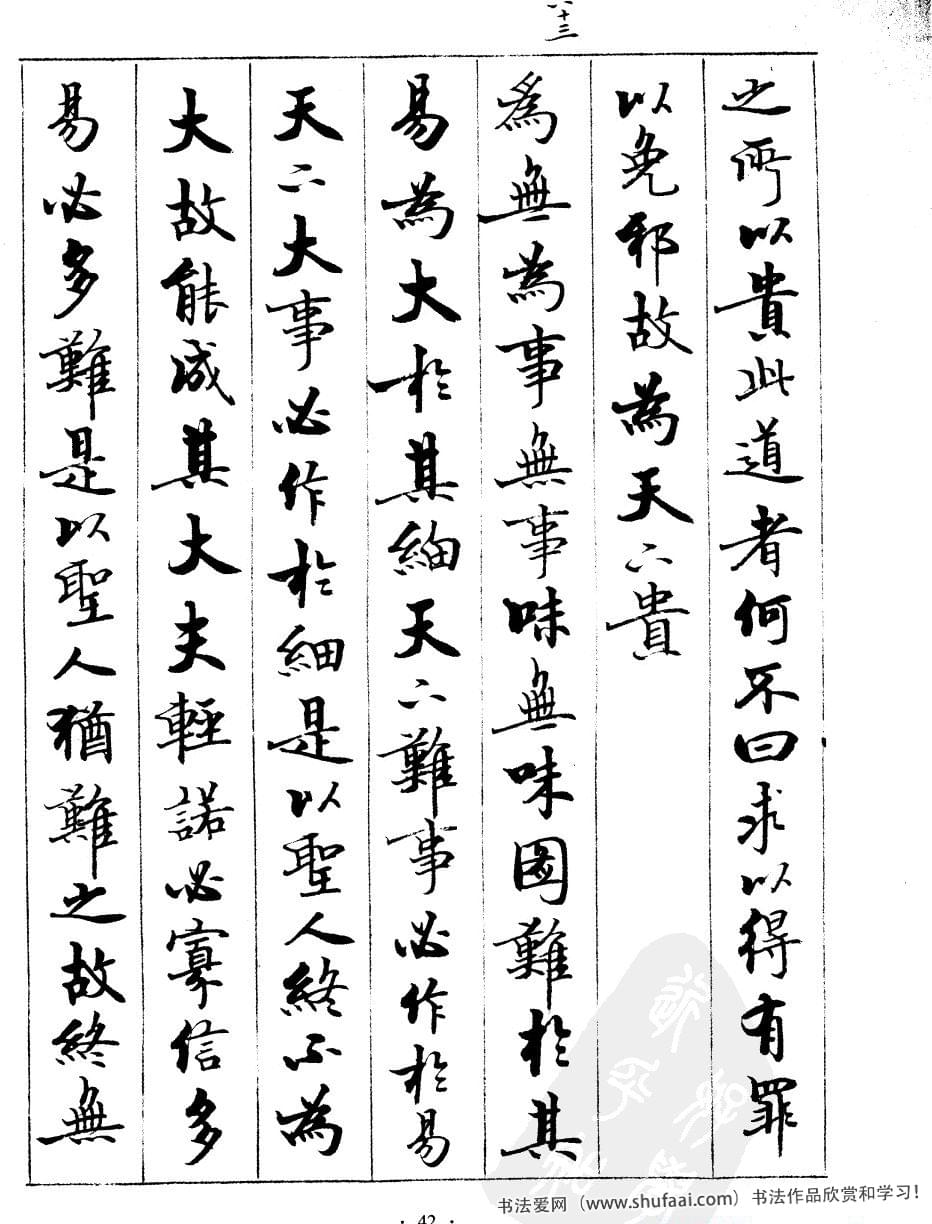 六十三
之所以貴此道者何不曰求以得有罪
以免邪故為天下貴
為無為事無事味無味圖難於其
易為大於其細天下難事必作於易
天下大事必作於細是以聖人終不為
大故能成其大夫輕諾必寡信多
易必多難是以聖人猶難之故終無
书法爱网（www.shufaai.com）书法作品欣赏和学习！
· 42 ·